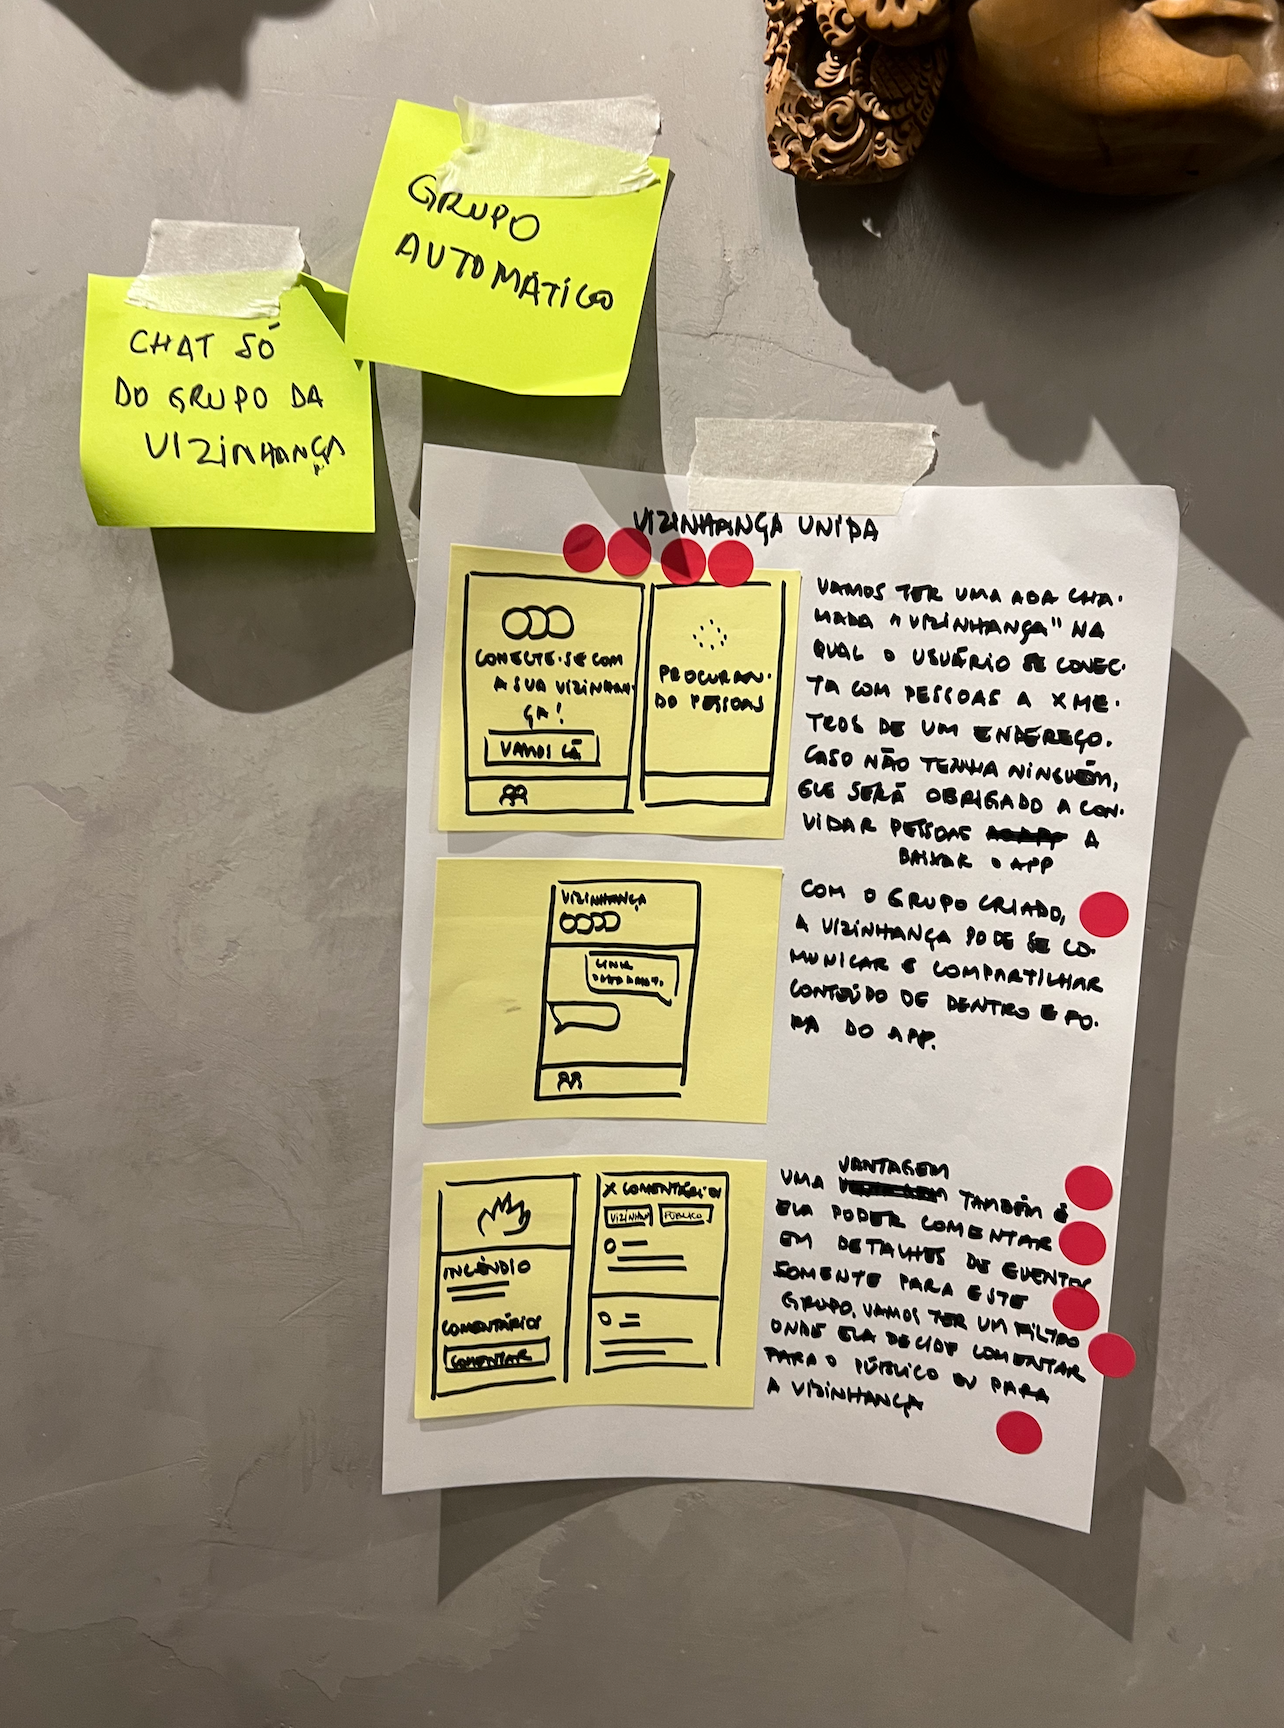 GRUPO
AUTOMÁTICO
CHAT SÓ
DO GRUPO DA
VIZINHANÇA
VIZINHANÇA UNIDA
CONECTE-SE COM
A SUA VIZINHAN-
ÇA!
VAMOS LÁ
PROCURAN-
DO PESSOAS
VAMOS TER UMA ABA CHA-
MADA "VIZINHANÇA" NA
QUAL O USUÁRIO SE CONEC-
TA COM PESSOAS A X ME-
TROS DE UM ENDEREÇO.
CASO NÃO TENHA NINGUÉM,
ELE SERÁ OBRIGADO A CON-
VIDAR PESSOAS A
BAIXAR O APP
VIZINHANÇA
LINK
COM O GRUPO CRIADO,
A VIZINHANÇA PODE SE CO-
MUNICAR E COMPARTILHAR
CONTEÚDO DE DENTRO E FO-
RA DO APP.
INCÊNDIO
COMENTÁRIOS
COMENTAR
X COMENTÁRIOS
VIZINHAN PÚBLICO
VANTAGEM
UMA TAMBÉM É
ELA PODER COMENTAR
EM DETALHES DE EVENTOS
SOMENTE PARA ESTE
GRUPO. VAMOS TER UM FILTRO
ONDE ELA DECIDE COMENTAR
PARA O PÚBLICO OU PARA
A VIZINHANÇA